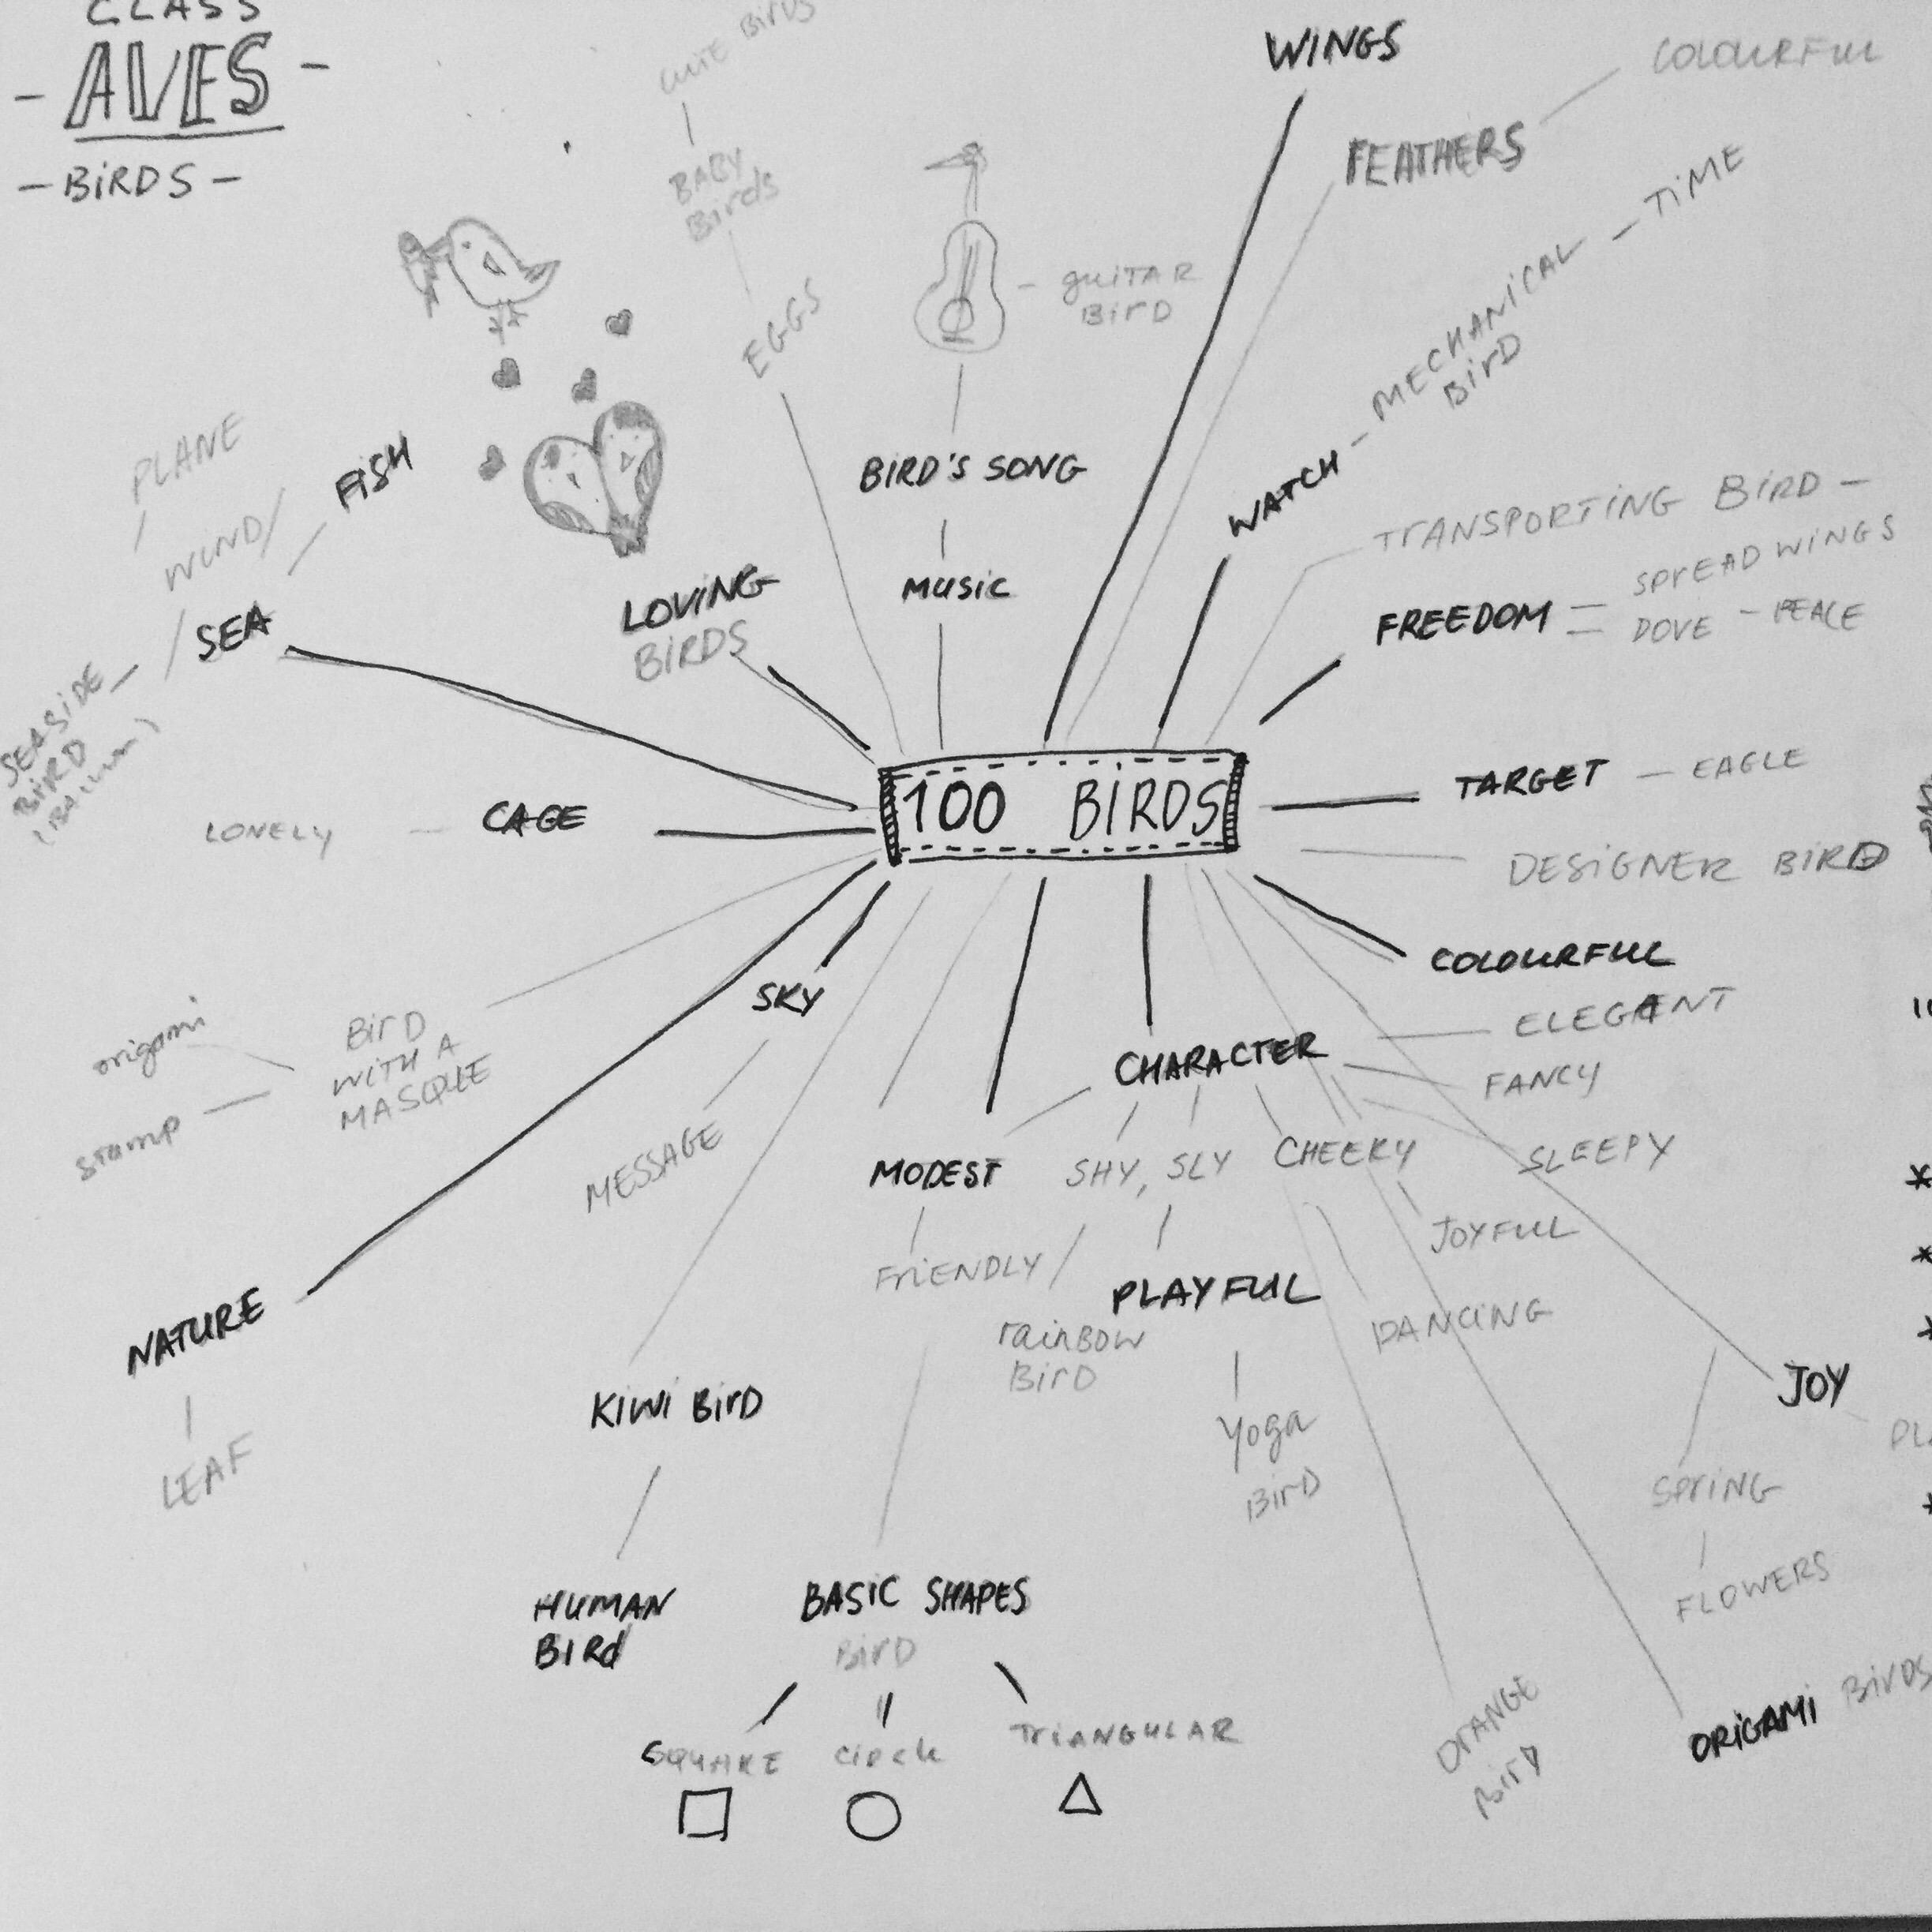 CLASS
- AVES -
- BiRDS -
CUTE BirDS
BABY
Birds
EGGS
guiTAR
BirD
BiRD'S SONG
MUSiC
WiNGS
FEATHERS
COLOURFUL
WATCH - MECHANiCAL - TiME
BirD
TrANSPORTiNG BirD -
FREEDOM
SPrEAD WiNGS
DOVE - PEACE
PLANE
WIND/
FiSH
SEA
SEASiDE
BiRD
LOViNG
BiRDS
LONELY - CAGE
100 BIRDS
TARGET - EAGLE
DESiGNER BiRD
COLOURFUL
SKY
MESSAGE
BirD
WiTH A
MASQUE
origami
stamp
NATURE
LEAF
CHARACTER
ELEGANT
FANCY
SLEEPY
MODEST
SHY, SLY
CHEEKY
JOYFUL
FriENDLY /
PLAYFUL
rainBOW
BirD
DANCiNG
Yoga
BirD
JOY
SPriNG
FLOWERS
KiWi BirD
HUMAN
BIRd
BASiC SHAPES
BirD
SQUARE
circle
TriANGULAR
OrANGE
Bird
ORiGAMi BirDS